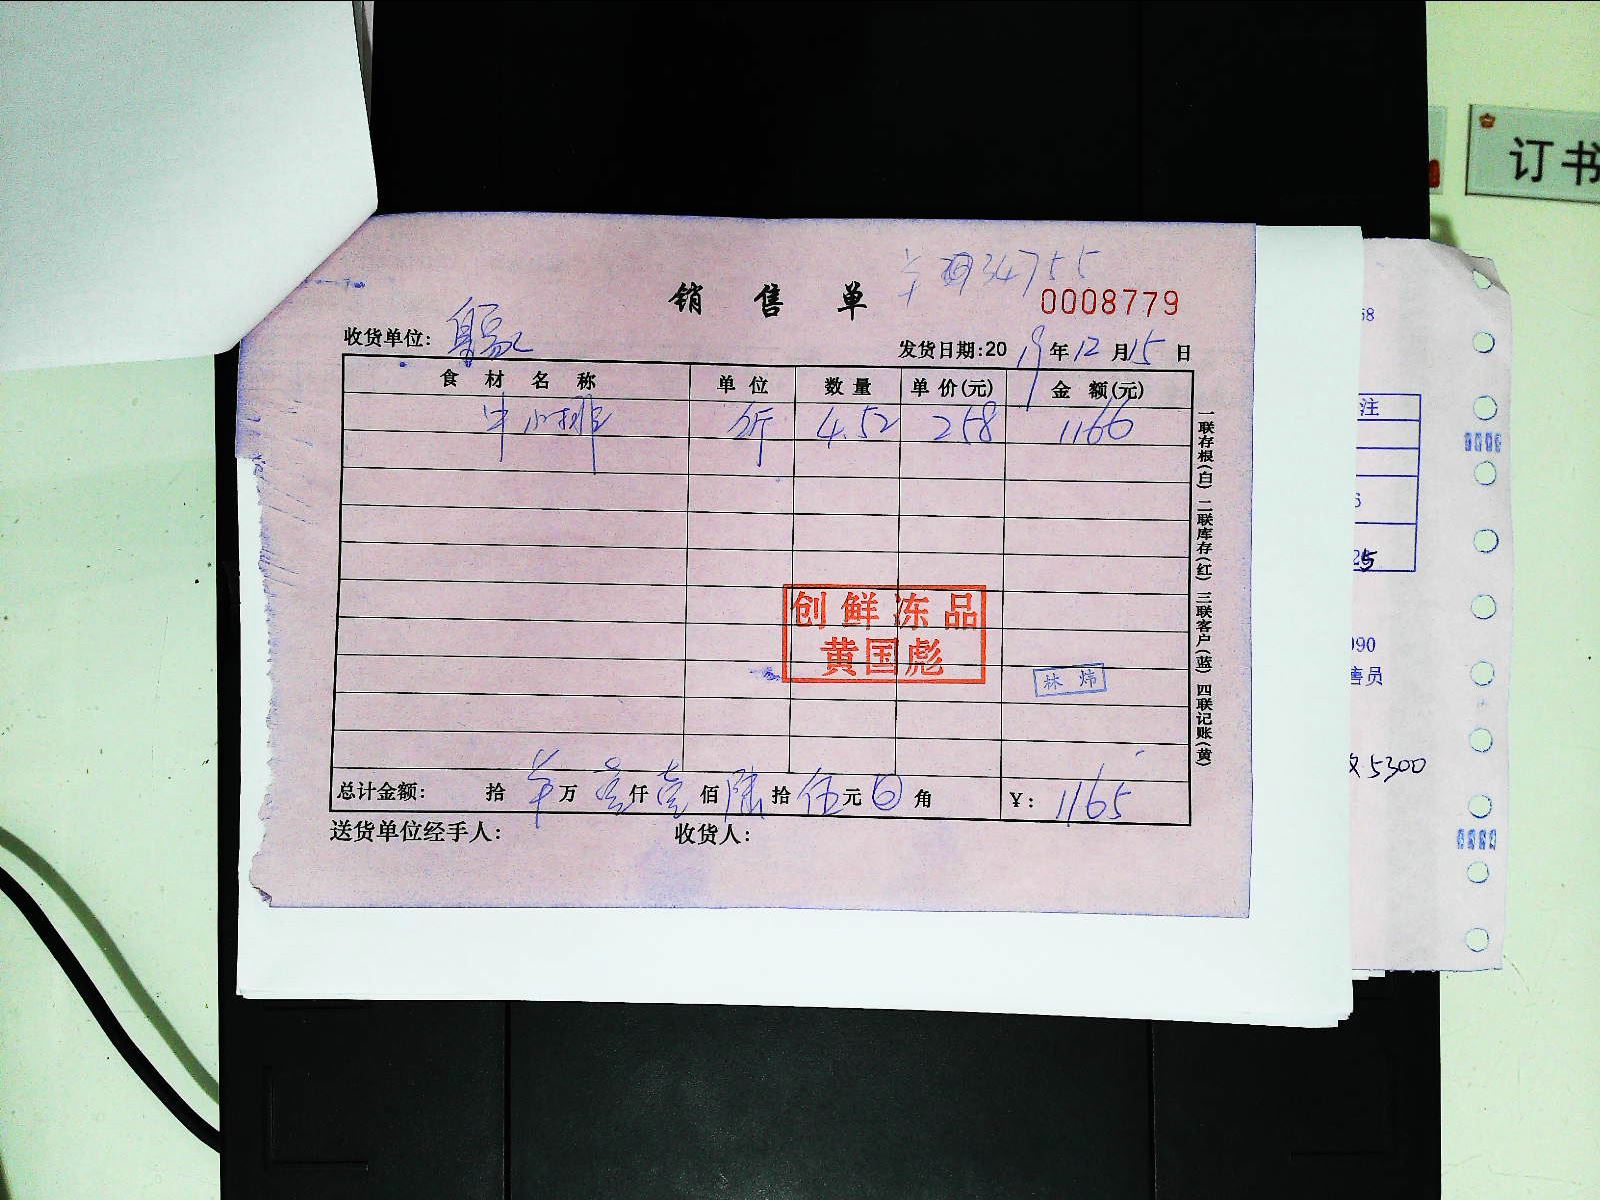 订书
34755
销售单
0008779
收货单位:
发货日期:2019年12月15日
食材名称 单位 数量 单价(元) 金额(元)
牛小排 斤 4.52 258 1166
一联存根(白) 二联库存(红) 三联客户(蓝) 四联记账(黄)
创鲜冻品
黄国彪
林炜
总计金额: 拾 万 壹仟壹佰陆拾伍元 角 ¥: 1165
送货单位经手人: 收货人:
68
注
5
25
090
售员
5300